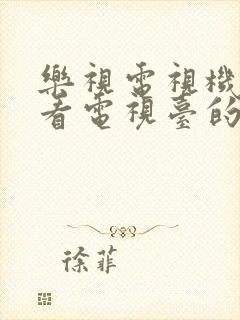 樂視電視機
看電視臺的
徐菲